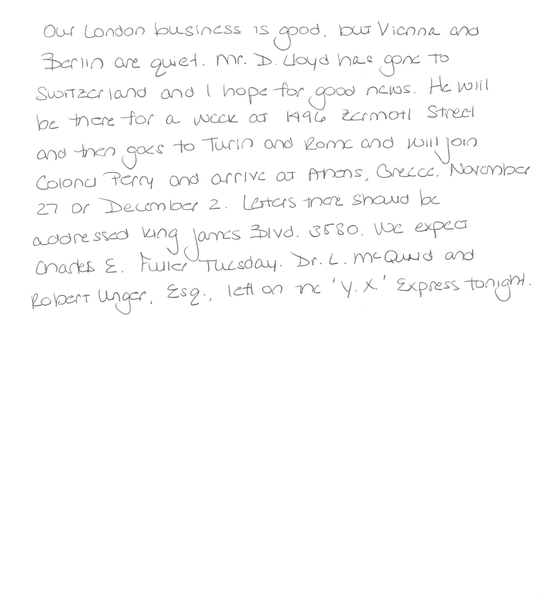 Our London business is good, but Vienna and
Berlin are quiet. Mr. D. Lloyd has gone to
Switzerland and I hope for good news. He will
be there for a week at 1496 Zermott Street
and then goes to Turin and Rome and will join
Colonel Perry and arrive at Athens, Greece, November
27 or December 2. Letters there should be
addressed King James Blvd. 3580. We expect
Charles E. Fuller Tuesday. Dr. L. McQuaid and
Robert Unger, Esq., left on the 'Y.X.' Express tonight.